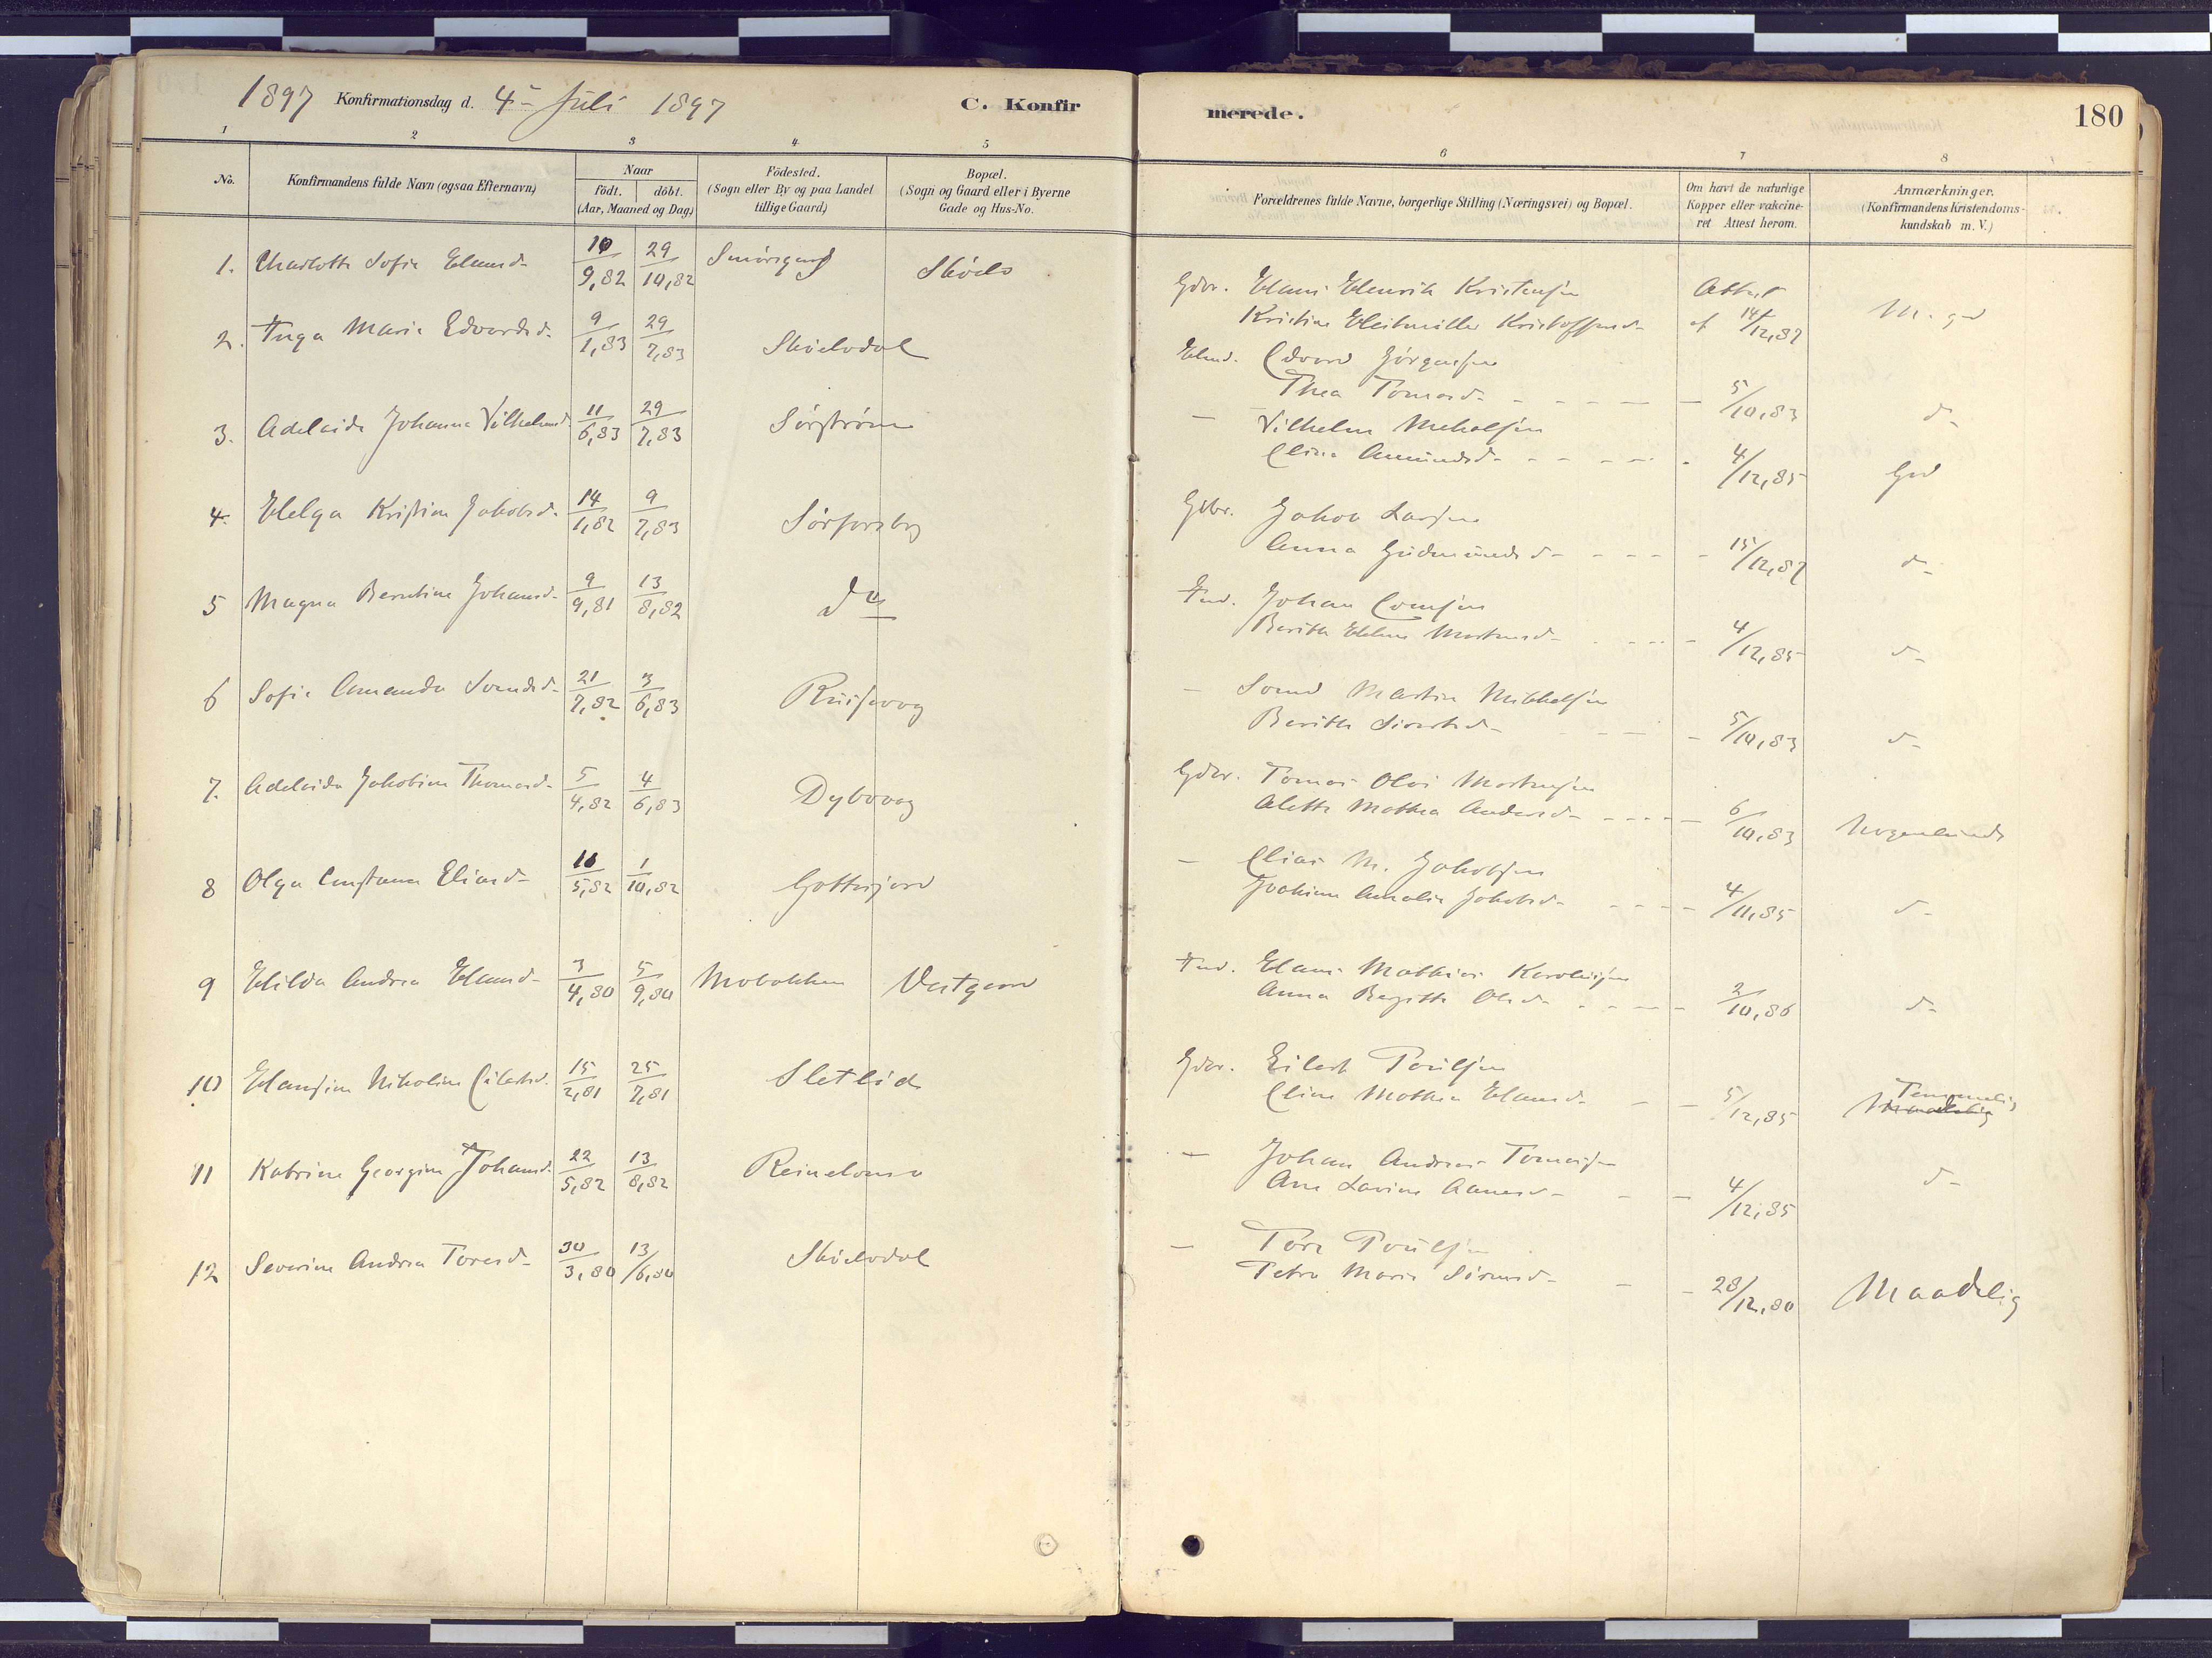 1897 Konfirmationsdag d. 4de Juli 1897 C. Konfirmerede. 180
1 2 3 4 5 6 7 8
No. Konfirmandens fulde Navn (ogsaa Efternavn) Naar födt. döbt. (Aar, Maaned og Dag) Födested. (Sogn eller By og paa Landet tillige Gaard) Bopæl. (Sogn og Gaard eller i Byerne Gade og Hus-No. Forældrenes fulde Navne, borgerlige Stilling (Næringsvei) og Bopæl. Om havt de naturlige Kopper eller vakcineret Attest herom. Anmærkninger. (Konfirmandens Kristendomskundskab m. V.)
1. Charlotte Sofie Hansd. 10/9,82 29/10,82 Gdbr. Hans Henrik Kristensen Attest M. gd
Kristine Kristoffersd. af 14/12,82
2. Inga Marie Edvardsd. 9/1,83 29/7,83 Skóelvdal Edvard Jörgensen
Thea Tomasd. - 5/10,83 d-
3. Adelaide Johanna Vilhelmsd. 11/6,83 29/7,83 Sörströmen - Vilhelm Mikalsen
Elina Amundsd. - 4/12,85 God
4. Helga Kristine Jakobsd. 14/1,82 9/7,83 Sörforsbog Gdbr. Jakob Larsen
Anna Gudmundsd - 15/12,82 d-
5 Magna Berntine Johansd. 9/9,81 13/8,82 do Ind. Johan Comsen
Berith Ellen Mortensd - 4/12,85 d-
6 Sofie Amanda 21/7,82 3/6,83 Ruisevog - Martin Mikkelsen
Berith Siversd - 5/10,83 d-
7. Adelaide Jakobine Thomasd. 5/4,82 4/6,83 Dybvog Gdbr. Tomas Olai Mortensen
Alette Mathea Andersd - 6/10,83 Nogenlunde
8 Olga Constance Eliasd- 10/5,82 1/10,82 Gottesjord - Elias M. Jakobsen
Joakime Amalie Jakobsd. - 4/11,85 d-
9 Hilda Andrea Hansd- 3/4,80 5/9,80 Mobakken Vestgaard Ind. Hans Mathias Karolinsen
Anna Bergitte Olsd - 2/10,86 d-
10 Hansine Nikoline Eilertsd. 15/2,81 25/7,81 Sletlid Gdbr. Eilert Poulsen Temmelig
Eline Mathea Hansd. - 5/12,85 Maadelig
11 Katrine Georgine Johansd. 22/5,82 13/8,82 - Johan Andreas Tomassen
Ane Lavine Aanesd - 4/12,85 d-
12 Severine Andrea Toresd- 30/3,80 13/6,80 Skóelvdal - Tore Poulsen
Petra Marie Sörensd- - 28/12,80 Maadelig